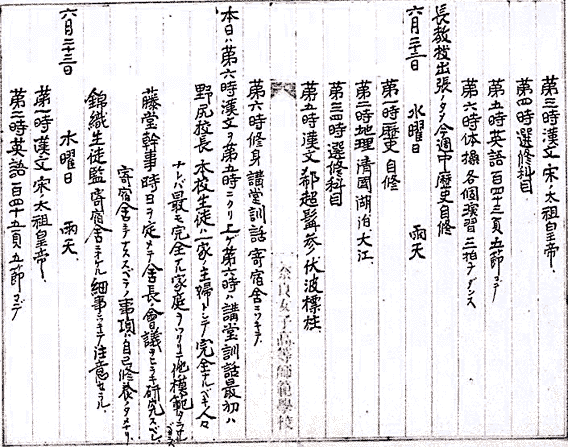 第三時漢文 宋ノ太祖皇帝、
第四時選修科目
第五時英語 百四十三頁五節マデ
第六時体操 各個演習 三拍子ダンス
長教授出張ノタメ今週中歴史自修
六月二十二日 水曜日 雨天
第一時歴史 自修
第二時地理 清國 湖泊 大江、
第三四時選修科目
第五時漢文 郗超髯参 伏波標柱、
奈良女子高等師範學校
第六時修身 講堂訓話 寄宿舎ニツキテ、
本日ハ第六時漢文ヲ第五時ニクリ上ゲ第六時ハ講堂訓話最初ハ
野尻校長 本校生徒ハ一家ノ主婦トシテ完全ナルベキ人々
ナレバ最モ完全ナル家庭ヲツクリテ他ノ模範タラザルベカラズ
藤堂幹事 時日ヲ定メテ舎長ノ會議ヲヒラキ研究スベシ
寄宿舎ニテナススベテノ事項ハ自己修養ノタメナリ
錦織生徒監 寄宿舎ニオケル細事ニツキテ注意セラル、
六月二十三日 木曜日 雨天
第一時漢文 宋ノ太祖皇帝、
第二時英語 百四十五頁五節マデ